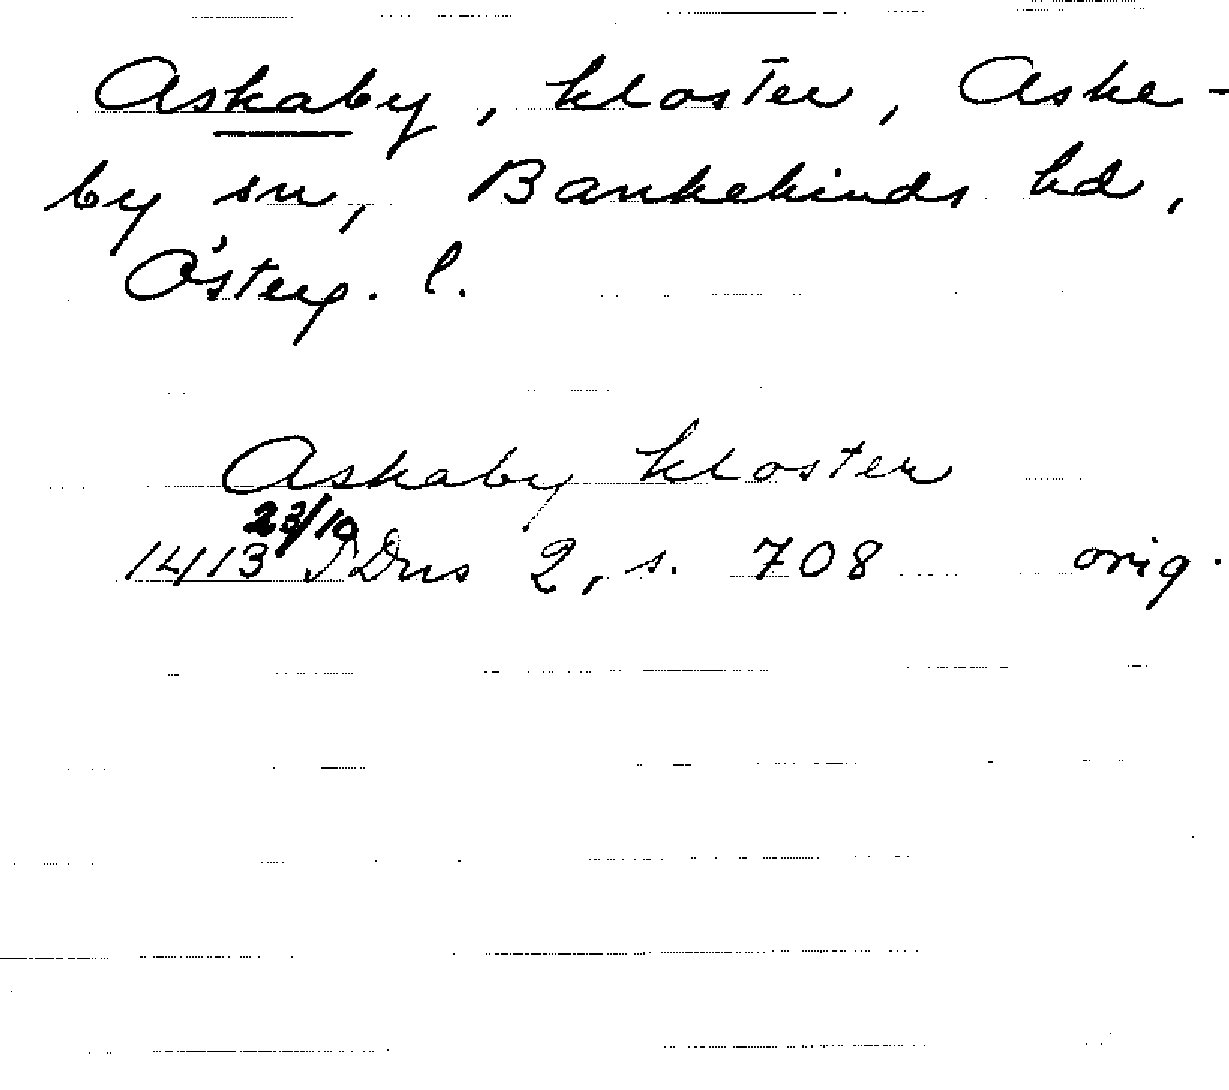 Askaby, kloster, Aske-
by sn, Bankekinds hd,
Österg. l.
Askaby kloster
23/10
1413 SDns 2, s. 708 orig.